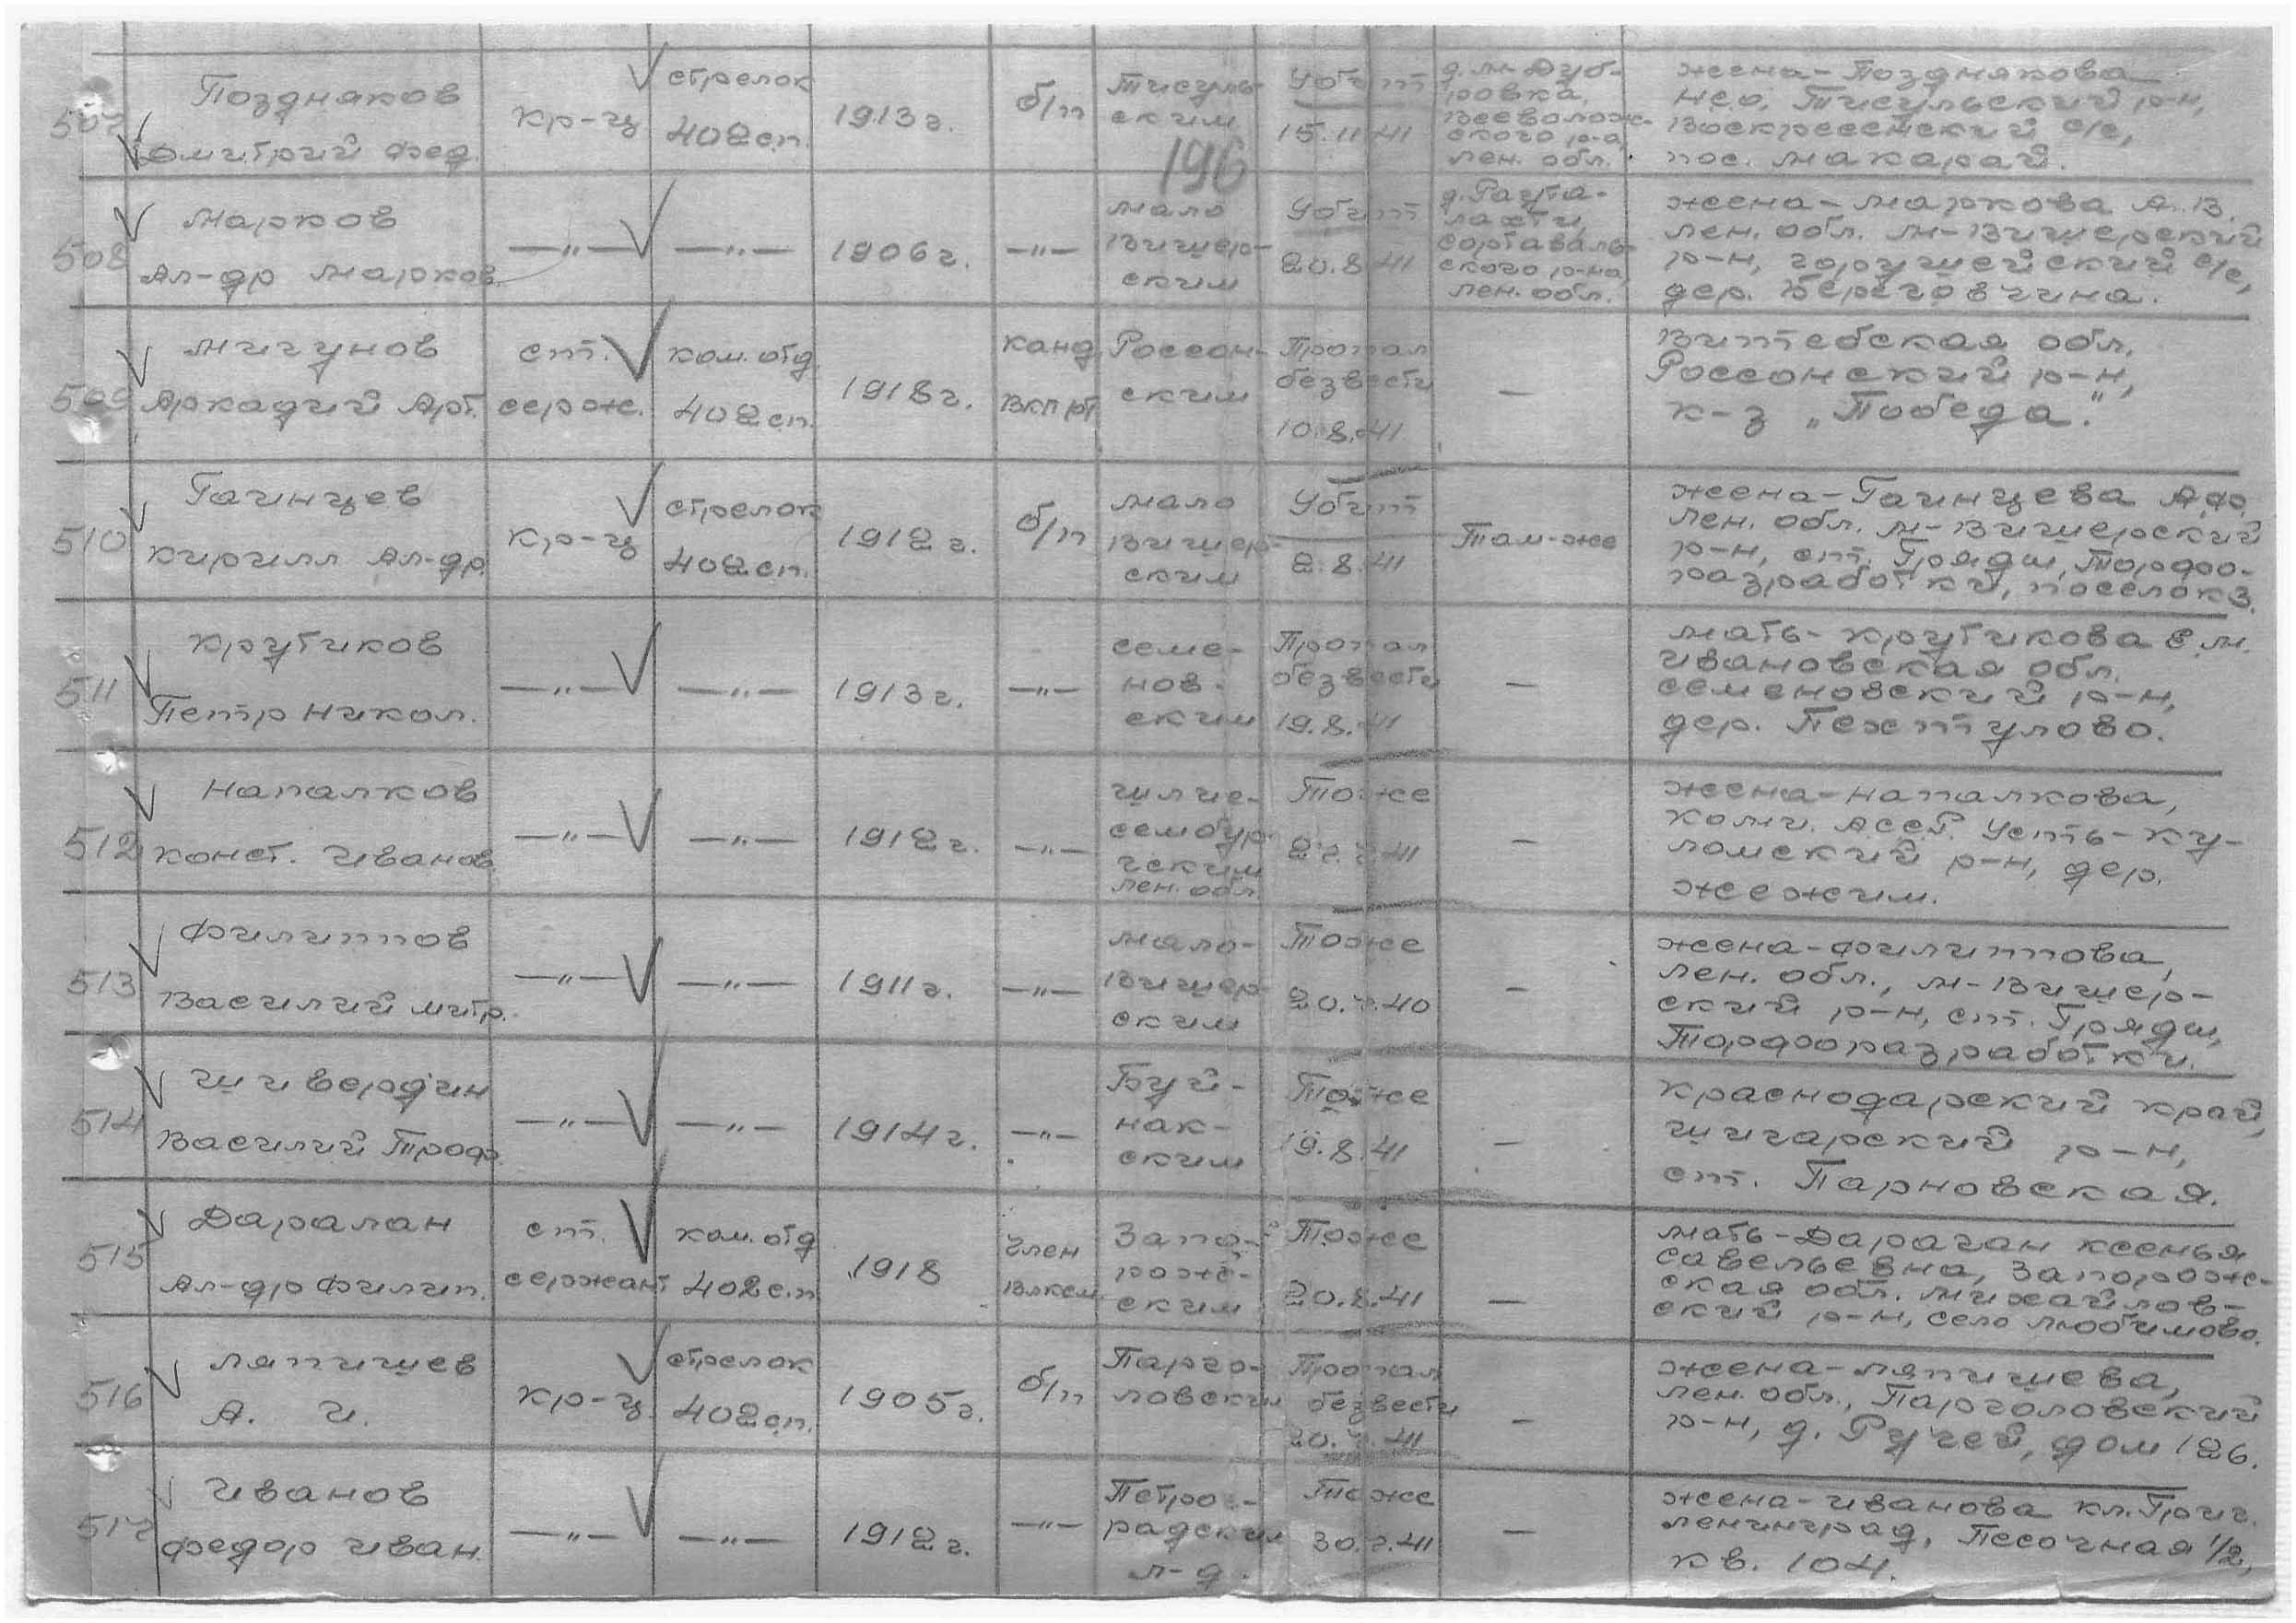 507
Поздняков
Дмитрий Фед.
кр-ц
стрелок
402 сп.
1913 г.
б/п
Тисуль-
ским
196
Убит
15.11.41
д. М-Дуб-
ровка,
Всеволож-
ского р-а,
Лен. обл.
жена-Позднякова
Тисульский р-н,
Воскресенский с/с,
пос. Макарай.
508
Марков
Ал-др Марков.
—„—
—„—
1906 г.
—„—
Мало
Вишер-
ским
Убит
20.8.41
д. Раута-
лахти,
Сортаваль-
ского р-на,
Лен. обл.
жена-Маркова А.В.
Лен. обл. М-Вишерский
р-н, Горушейский с/с,
дер. Береговчина.
509
Мигунов
Аркадий Арт.
ст.
серж.
ком. отд.
402 сп.
1918 г.
канд
ВКП(б)
Россон-
ским
Пропал
безвести
10.8.41
—
Витебская обл.
Россонский р-н,
к-з „Победа".
510
Гаинцев
Кирилл Ал-др.
кр-ц
стрелок
402 сп.
1912 г.
б/п
Мало
Вишер-
ским
Убит
2.8.41
Там-же
жена-Гаинцева А.Ф.
Лен. обл. М-Вишерский
р-н, ст. Гряды, Торфо-
разработки, поселок 3.
511
Крутиков
Петр Никол.
—„—
—„—
1913 г.
—„—
Семе-
нов-
ским
Пропал
безвести
19.8.41
—
мать-Крутикова Е.М.
Ивановская обл.
Семеновский р-н,
дер. Пехтулово.
512
Напалков
Конст. Иванов.
—„—
—„—
1912 г.
—„—
Шлис-
сельбур-
гским
Лен. обл.
Тоже
—
жена-Напалкова,
Коми. АССР. Усть-Ку-
ломский р-н, дер.
Жежим.
513
Филиппов
Василий Митр.
—„—
—„—
1911 г.
—„—
Мало-
Вишер-
ским
Тоже
—
жена-Филиппова,
Лен. обл., М-Вишер-
ский р-н, ст. Гряды,
Торфоразработки.
514
Шивердин
Василий Троф.
—„—
—„—
1914 г.
—„—
Буй-
нак-
ским
Тоже
19.8.41
—
Краснодарский край,
Шигарский р-н,
ст. Парновская.
515
Даралан
Ал-др Филип.
ст.
сержант
ком. отд
402 с.п.
1918
член
ВЛКСМ
Запо-
рож-
ским
Тоже
20.8.41
—
мать-Дараган Ксенья
Савельевна, Запорож-
ская обл. Михайлов-
ский р-н, село Любимово.
516
Ляпишев
А. И.
кр-ц.
стрелок
402 сп.
1905 г.
б/п
Парго-
ловским
Пропал
безвести
—
жена-Ляпишева,
Лен. обл., Парголовский
р-н, д. Ручей, дом 126.
517
Иванов
Федор Иван.
—„—
—„—
1912 г.
—„—
Петро-
радским
Л-д.
Тоже
—
жена-Иванова Кл. Григ.
Ленинград, Песочная 1/2,
кв. 104.